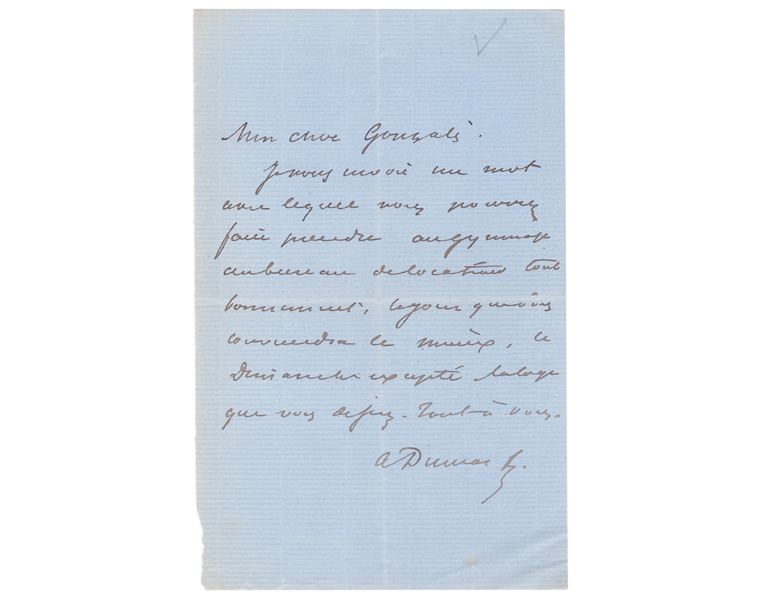 Mon cher Gonzalès.
Je vous envoie un mot
avec lequel vous pourrez
faire prendre au gymnase
au bureau de location tout
bonnement, le jour qui vous
conviendra le mieux, le
Dimanche excepté la loge
que vous désirez. Tout à vous.
A Dumas f.